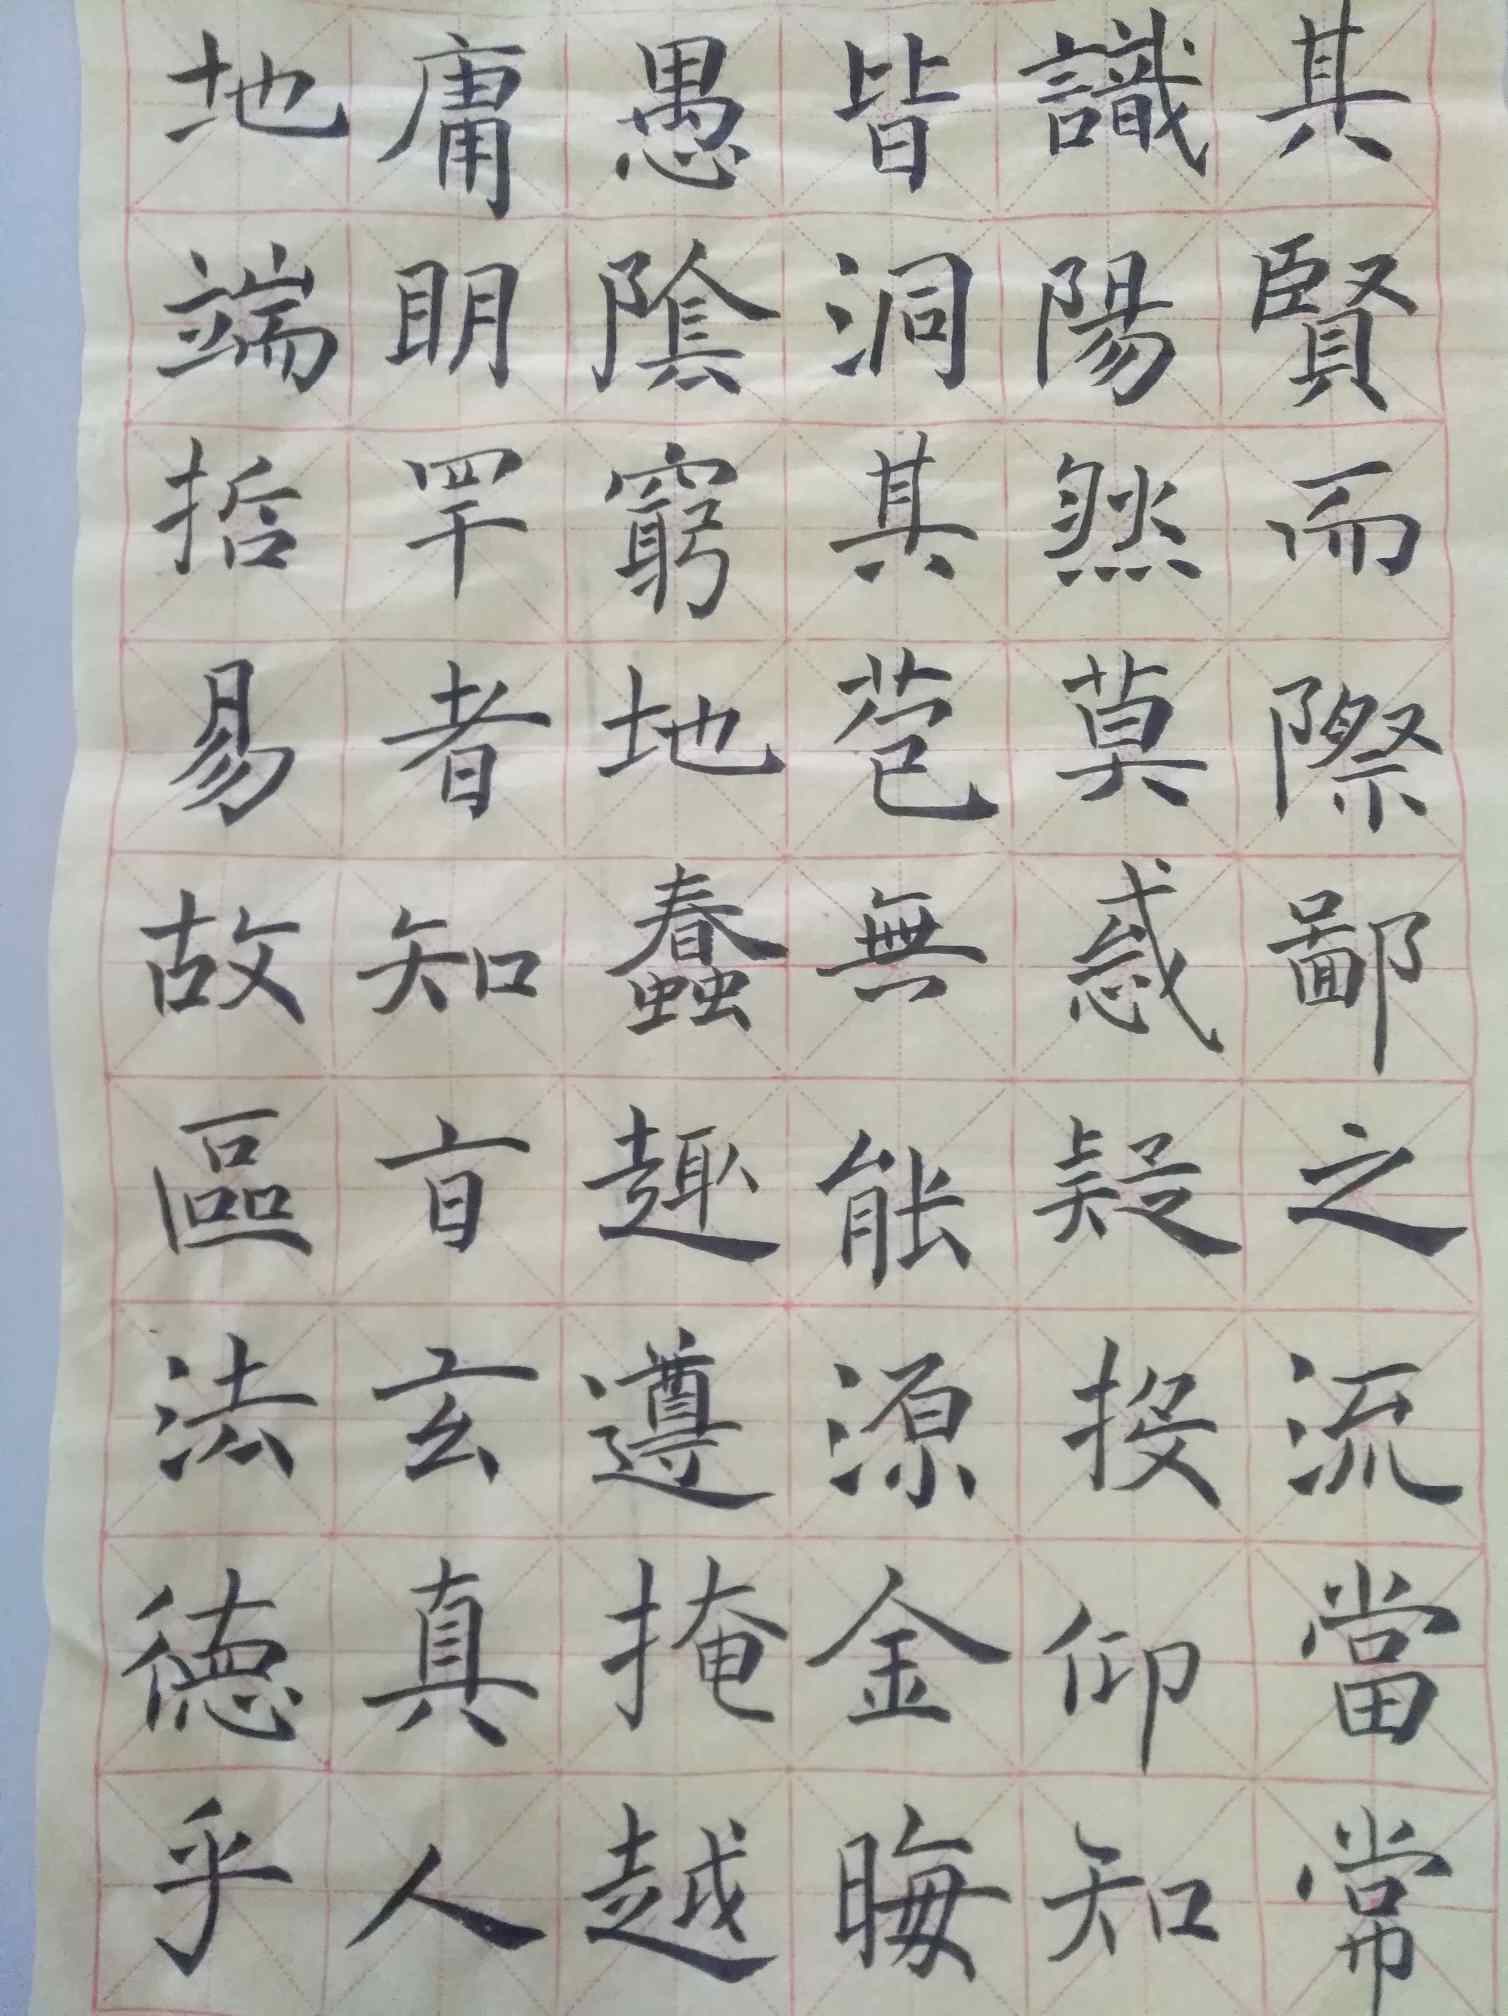 其賢而際鄙之流當常
識陽然莫惑疑投仰知
皆洞其苞無能源金晦
愚陰窮地蠢趣遵掩越
庸眀罕者知旨玄真人
地端哲易故區法德乎